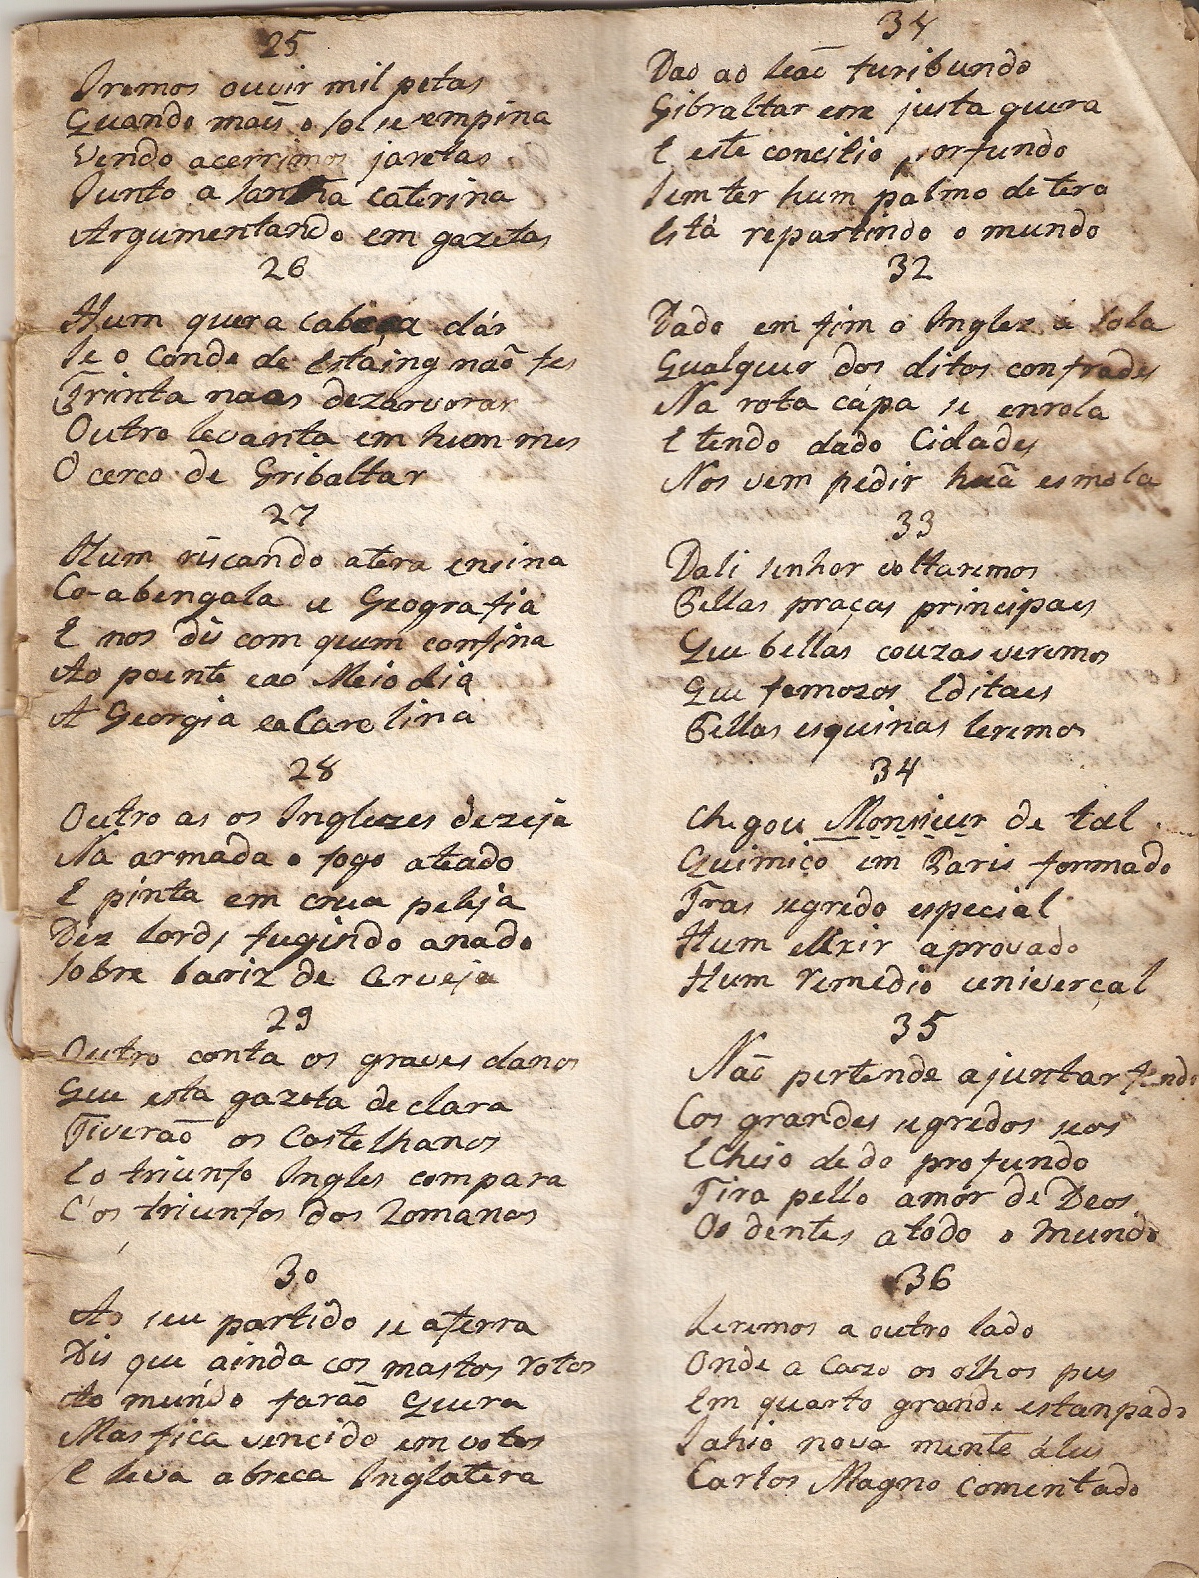 25
Iremos ouvir mil petas
Quando mais o sol se empina
Vendo acerrimos jaretas
Junto a santa Caterina
Argumentando em gazetas
26
Hum quera cabeça dár
Se o Conde de Estaing naõ fes
Trinta naos dezarvorar
Outro levanta em hum mes
O cerco de Gribaltar
27
Hum riscando atera ensina
Co-abengala e Geografia
E nos dis com quem confina
Ao poente eao Meio dia
A Georgia ea Carolina
28
Outro as os Inglezes dezeja
Na armada o fogo ateado
E pinta em crua peleja
Dez lords fugindo anado
Sobre bariz de Cerveja
29
Outro conta os graves danos
Que esta gazeta declara
Tiveraõ os Castelhanos
Eo triunfo Ingles compara
C'os triunfos dos Romanos
30
Ao seu partido se aferra
Dis que ainda cos mastos rotos
Ao mundo faraõ Guera
Mas fica vencido em votos
E leva abreca Inglatera
31
Dao ao leaõ furibundo
Gibraltar em justa guera
E este concilio porfundo
Sem ter hum palmo de tera
Está repartindo o mundo
32
Dado em fim o Inglez á sola
Qualquer dos ditos confrades
Na rota cápa se enrola
E tendo dado Cidades
Nos vem pedir huã esmola
33
Dali senhor voltaremos
Pellas praças principaes
Que bellas couzas veremos
Que famozos Editaes
Pellas esquinas leremos
34
Chegou Monsieur de tal
Quimico em Paris formado
Tras segredo especial
Hum elixir aprovado
Hum remedio univerçal
35
Naõ pertende ajuntar fundos
Cos grandes segredos seos
E Cheio de do profundo
Tira pello amor de Deos
Os dentes atodo o mundo
36
Leremos a outro lado
Onde a Cazo os olhos pus
Em quarto grande estanpado
Sahio nova mente álus
Carlos Magno Comentado